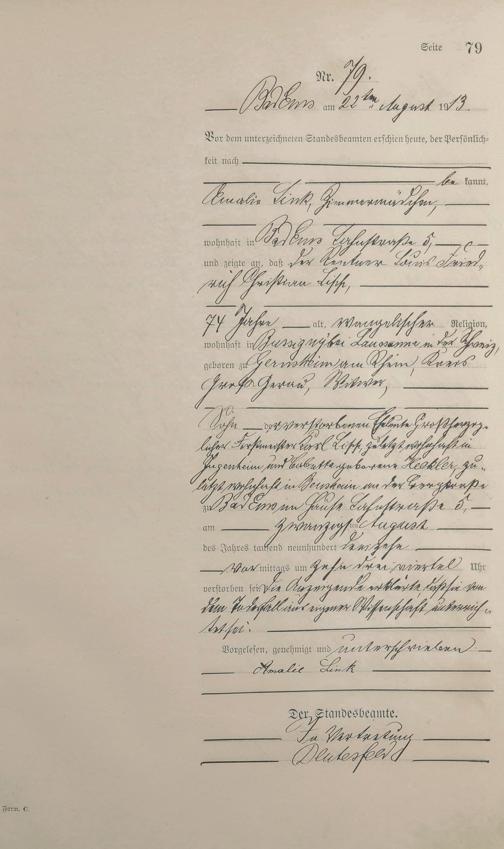 Seite 79
Nr. 79.
Bad Ems am 22ten August 1913.
Vor dem unterzeichneten Standesbeamten erschien heute, der Persönlich-
keit nach
be kannt,
Amalie Link, Zimmermädchen,
wohnhaft in Bad Ems Lahnstraße 5,
und zeigte an, daß der Rentner Louis Fried-
rich Christian
74 Jahre alt, evangelischer Religion,
wohnhaft in bei Lausanne in der Schweiz,
geboren zu Gernsheim am Rhein, Kreis
Groß Gerau, Witwer,
Sohn der verstorbenen Eheleute Großherzog-
licher Forstmeister Carl zuletzt wohnhaft in
Jugenheim, und Babette geborene zu-
letzt wohnhaft in Bensheim an der Bergstraße
zu Bad Ems im Hause Lahnstraße 5,
am zwanzigsten August
des Jahres tausend neunhundert dreizehn
Vormittags um zehn drei viertel Uhr
verstorben sei. Die Anzeigende erklärte, daß sie von
dem Todesfall aus eigener Wissenschaft unterrich-
tet sei.
Vorgelesen, genehmigt und unterschrieben
Amalie Link
Der Standesbeamte.
In Vertretung
Form. C.